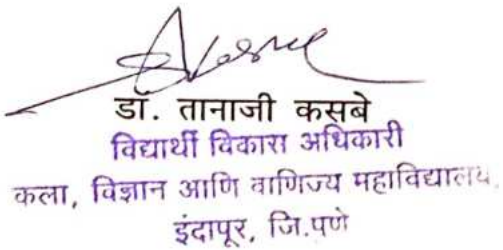 डॉ. तानाजी कसबे
विद्यार्थी विकास अधिकारी
कला, विज्ञान आणि वाणिज्य महाविद्यालय,
इंदापूर, जि.पुणे